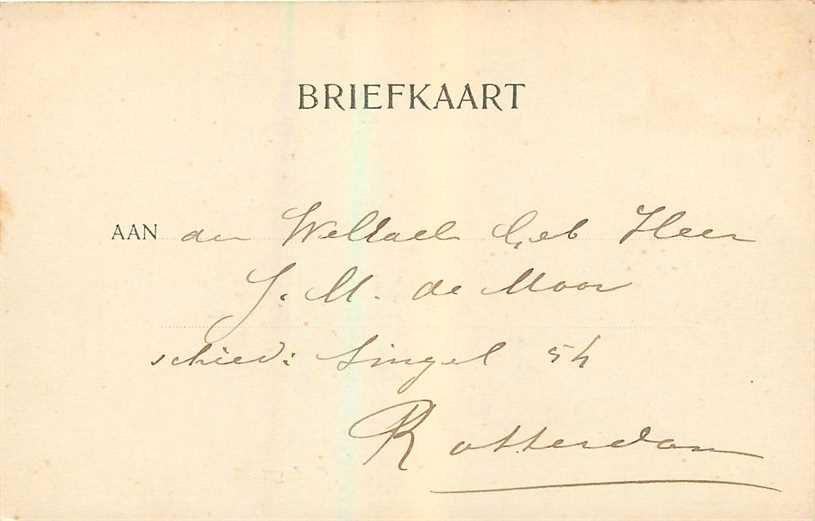 BRIEFKAART
AAN den WelEdel Geb Heer
J. M. de Moor
schied: Singel 54
Rotterdam